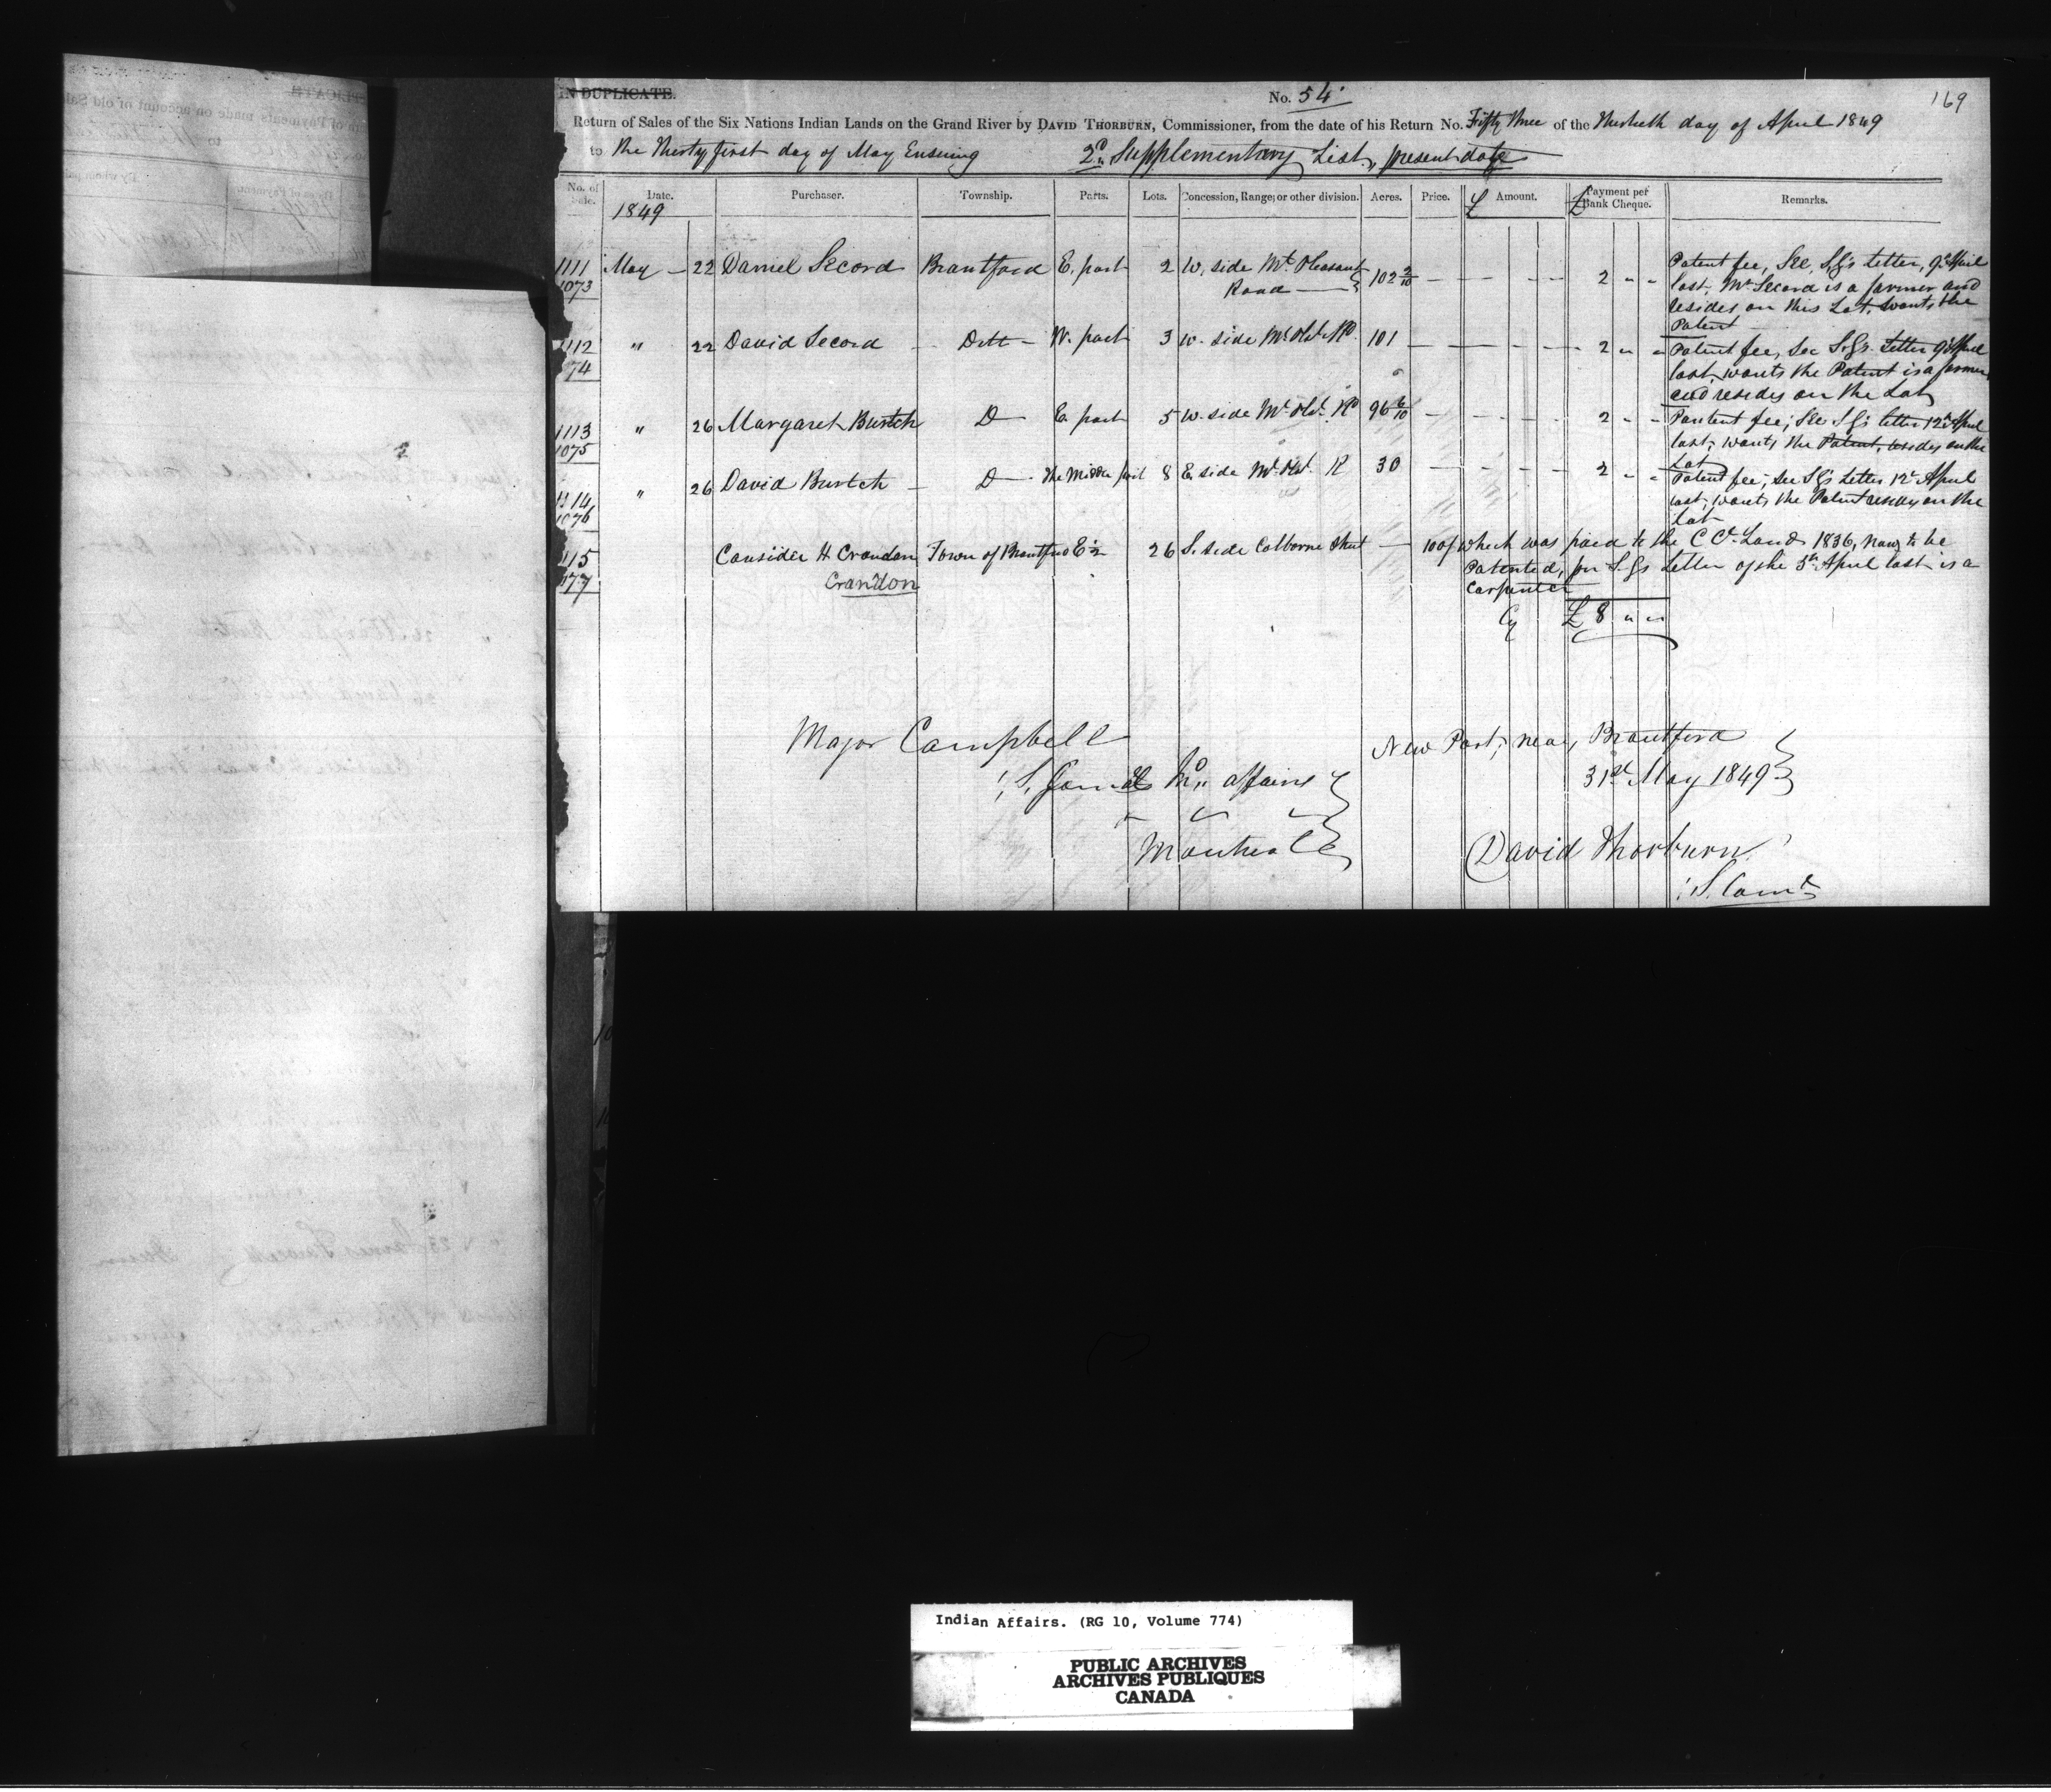 IN DUPLICATE.
No. 54
169
Return of Sales of the Six Nations Indian Lands on the Grand River by DAVID THORBURN, Commissioner, from the date of his Return No. Fifty three of the Thirtieth day of April 1849
to the Thirty first day of May Ensuing 2d Supplementary List, present date
No. of Sale. Date. Purchaser. Township. Parts. Lots. Concession, Range, or other division. Acres. Price. £ Amount. £ Payment per Bank Cheque. Remarks.
1849
1111 May 22 Daniel Secord Brantford E. part 2 W. side Mt Pleasant 102 2/10 — 2 " " Patent fee, See S.G's Letter, 9th April
1073 Road last, Mr Secord is a farmer and
resides on this Lot, wants the
Patent
1112 " 22 David Secord Ditt W. part 3 W. side Mt Plst Rd 101 — 2 " " Patent fee, See S.G's Letter 9th April
74 last, wants the Patent is a farmer
and resides on the Lot
1113 " 26 Margaret Burtch Do E. part 5 W. side Mt Plst Rd 96 6/10 — 2 " " Pantent fee, See S.G's letter 12th April
1075 last, wants the Patent, resides on the
Lot
1114 " 26 David Burtch Do The Middle part 8 E. side Mt Plst R 30 — 2 " " Patent fee, see S.G's Letter 12th April
1076 last, wants the Patent resides on the
Lot
115 Consider H Crandon Town of Brantford E ½ 26 S. side Colborne Street — 100/ Which was paid to the C Cr Lands 1836, now to be
77 Crandon Patented, per S.G's Letter of the 5th April last is a
Carpenter
Cy £ 8 " "
Major Campbell
New Port, near, Brantford
Affairs
31st May 1849
Montreal
David Thorburn
S. Comr
Indian Affairs. (RG 10, Volume 774)
PUBLIC ARCHIVES
ARCHIVES PUBLIQUES
CANADA